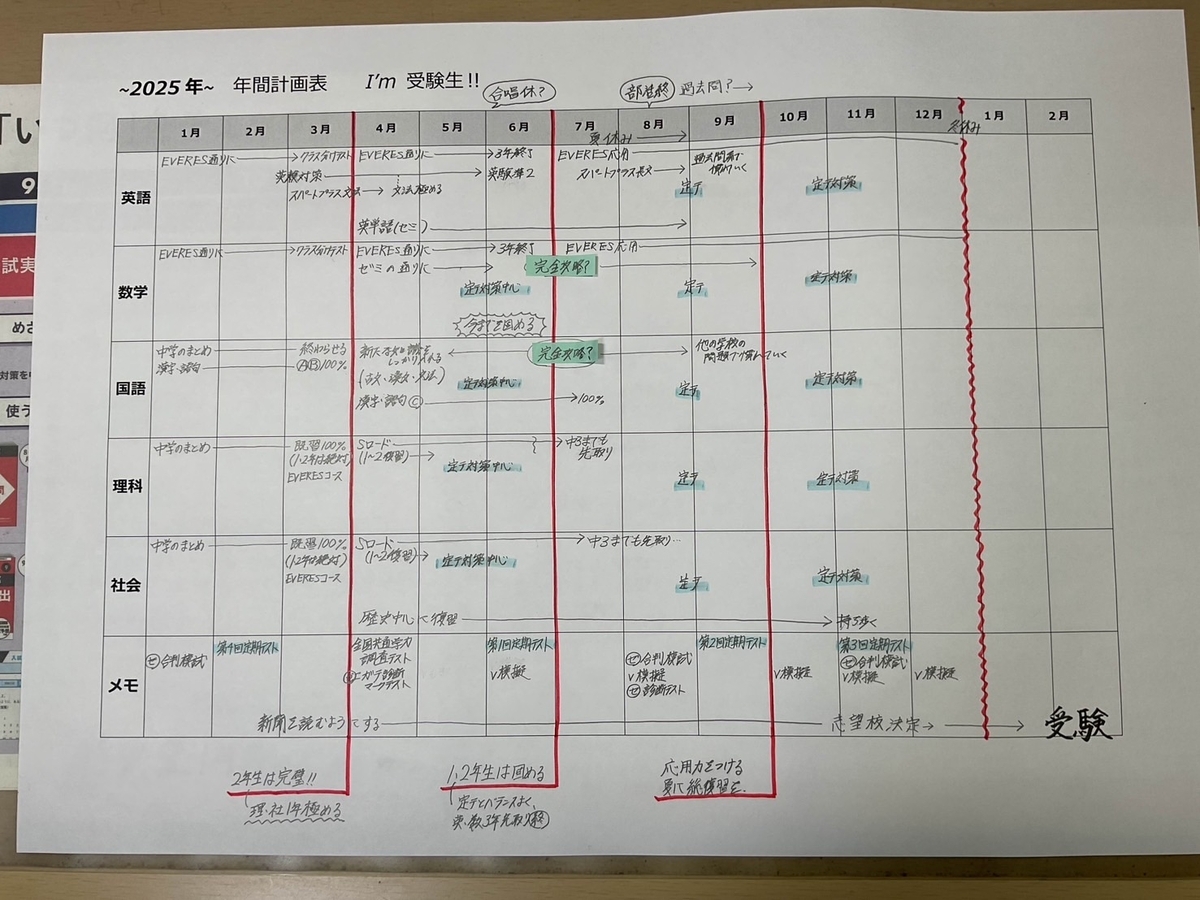 ~2025年~ 年間計画表 I'm 受験生!!
合唱休?
部活終 過去問?→
1月 2月 3月 4月 5月 6月 7月 8月 9月 10月 11月 12月 1月 2月
夏休み→
冬休み
英語
EVERES通りに→クラス分けテスト
EVERES通りに→3年終了
EVERES応用
過去問等で
英検対策→英験準2
スパートプラス文法→文法極める
スパートプラス長文→
定テ
定テ対策
英単語(ゼミ)→
数学
EVERES通りに→クラス分けテスト
EVERES通りに→3年終了
EVERES応用
ゼミの通りに→
完全攻略?
定テ対策中心
定テ
定テ対策
今までを固める
国語
中学のまとめ
終わらせる
漢字・語句
ⒶⒷ100%
新たな知識を
しっかり入れる
(古文・漢文・文法)
完全攻略?
他の学校の
問題で解いていく
定テ対策中心
定テ
定テ対策
漢字・語句Ⓒ→100%
理科
中学のまとめ
既習100%
(1・2年は絶対)
EVERESコース
Sロード
(1~2復習)→
→中3までも
先取り
定テ対策中心
定テ
定テ対策
社会
中学のまとめ
既習100%
(1・2年は絶対)
EVERESコース
Sロード→中3までも先取り…
(1~2復習)→
定テ対策中心
定テ
定テ対策
歴史中心に復習→持ち歩く
メモ
㋝合判模試
第4回定期テスト
全国共通学力
調査テスト
診断
マークテスト
第1回定期テスト
V模擬
㋝合判模試
V模擬
㋝診断テスト
第2回定期テスト
V模擬
第3回定期テスト
㋝合判模試
V模擬
V模擬
新聞を読むようにする
志望校決定→
受験
2年生は完璧!!
理・社1年極める
1,2年生は固める
定テとバランスよく、
英・数3年先取り終
応用力をつける
夏に総復習を.
「い
9
試実
めざ
対策を
使う
出